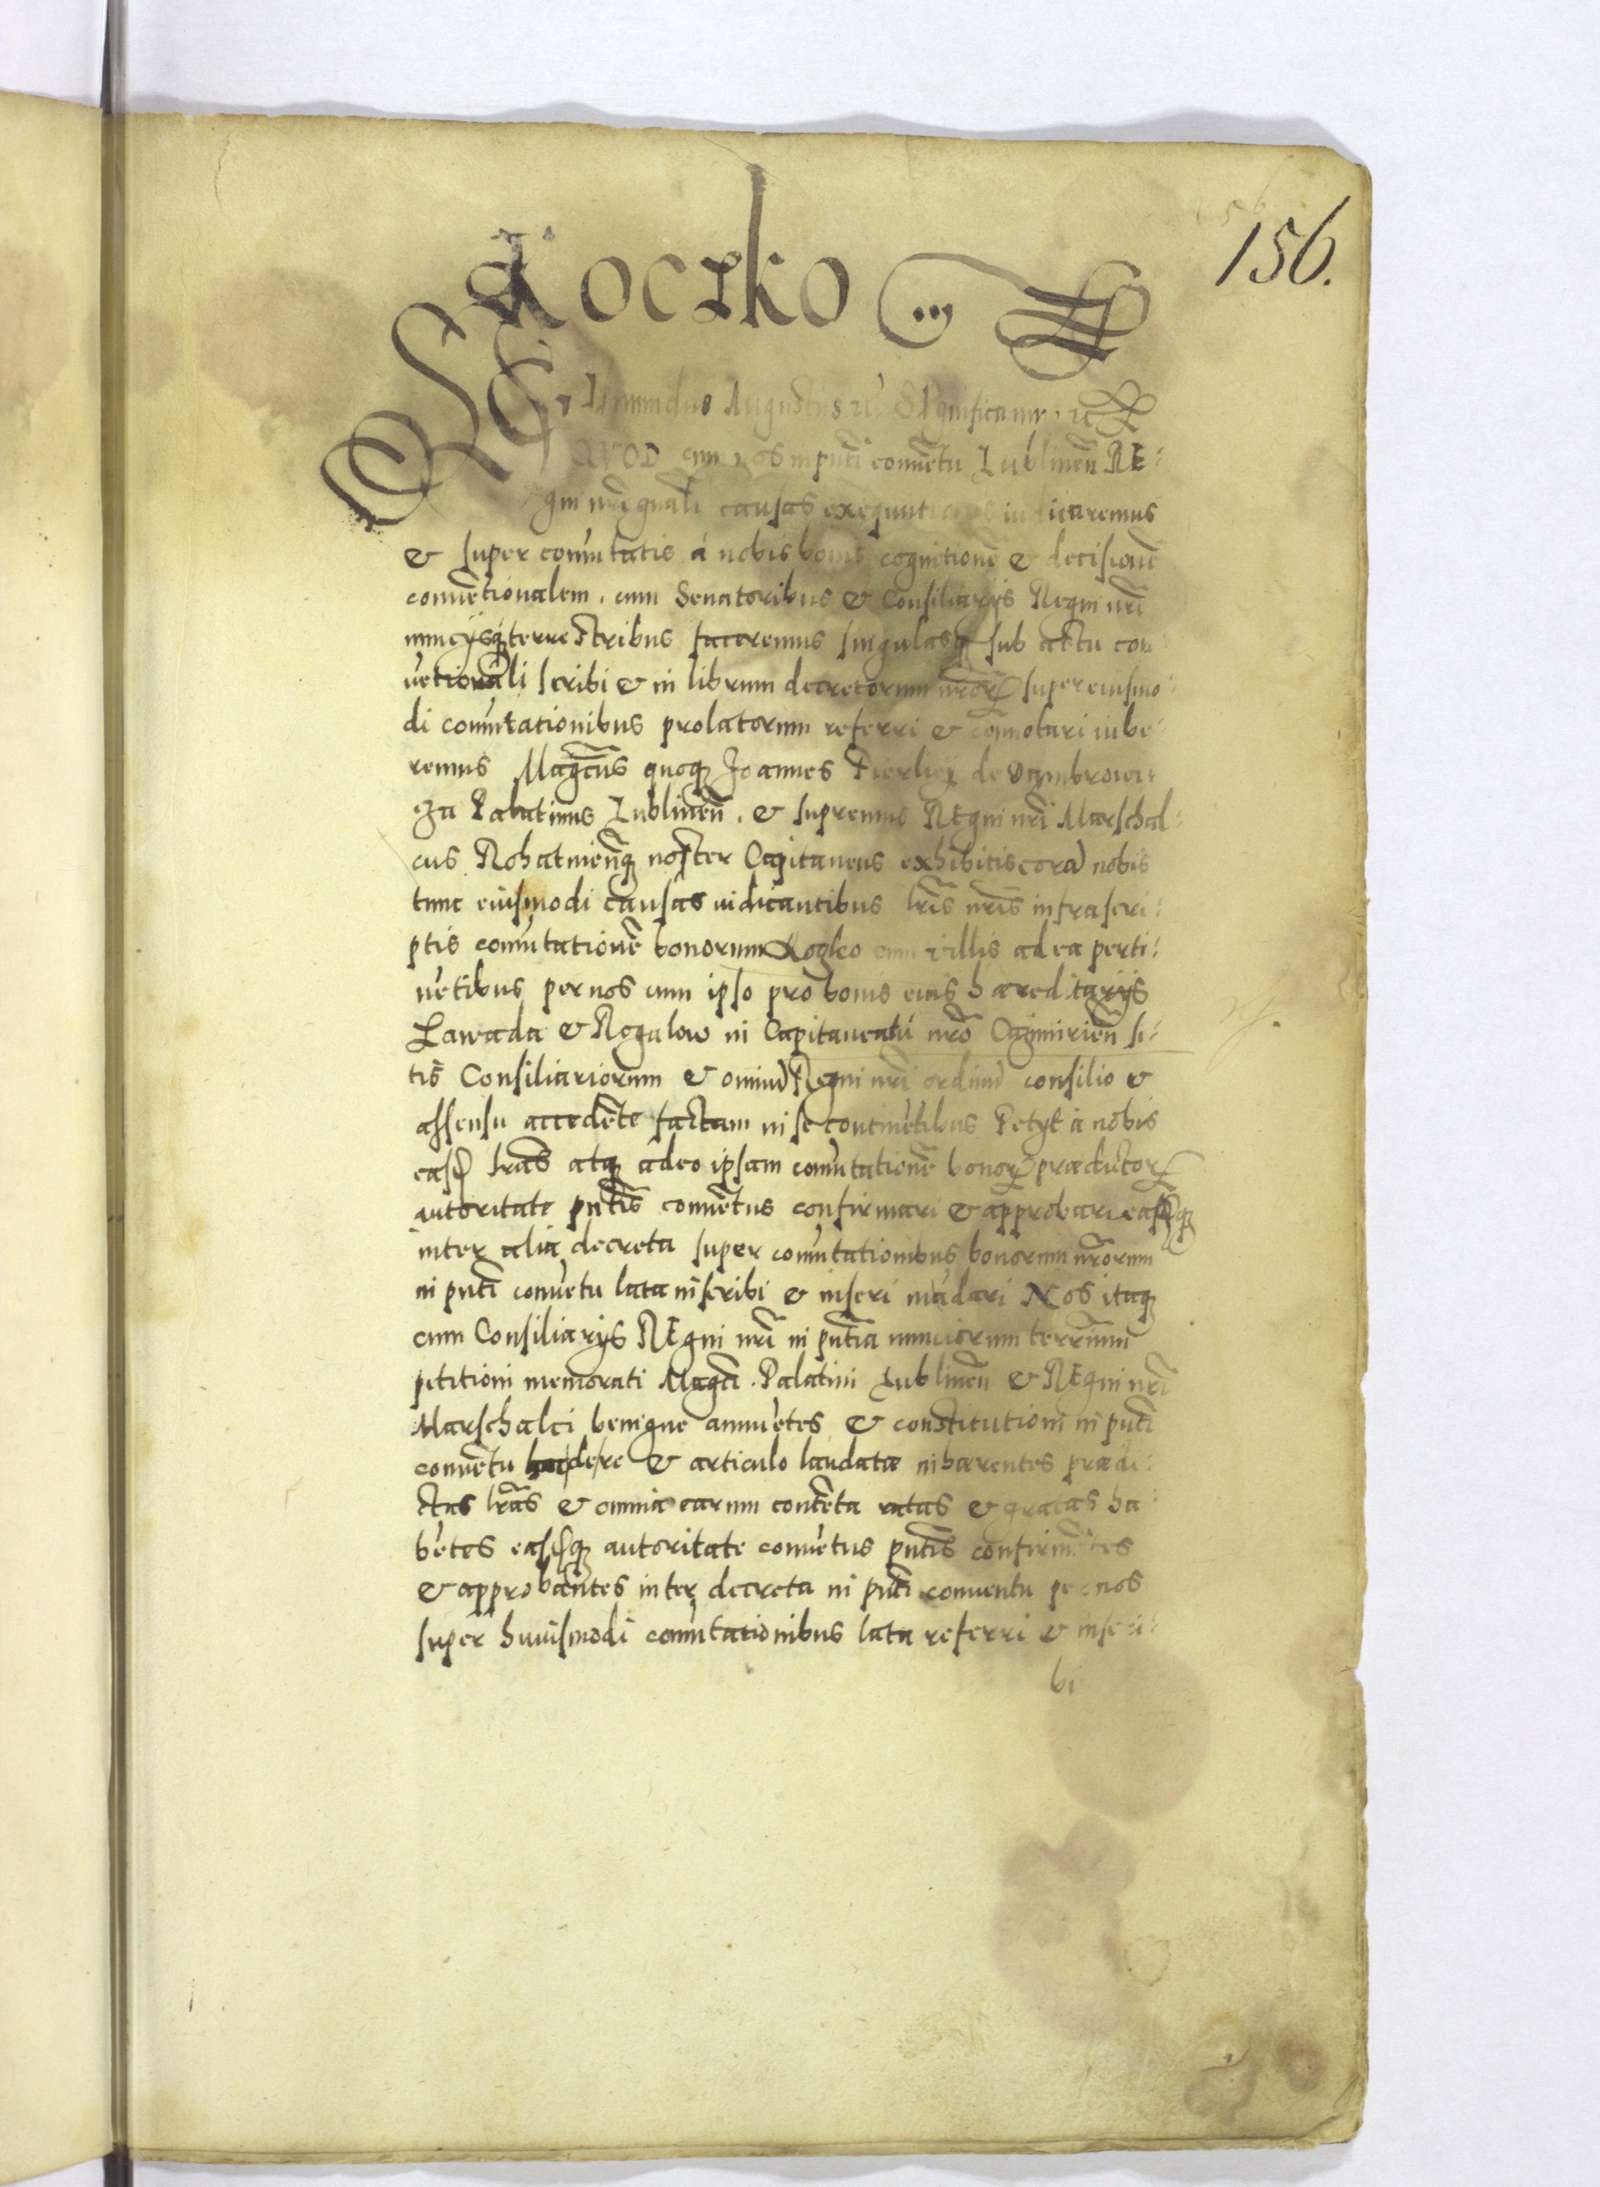 156.
Roczko
Sigismundus Augustus etc Significamus etc
QVOD cum nos in pnti conuētu Lublineñ RE:
gni nri gnali causas exequut iudicaremus
& super comutatis á nobis bonis cognitionē & decisionē
conuētionalem. cum Senatoribus & Consiliarijs Regni nri
nuncijsq terrestribus faceremus singulasq sub actu con
uētionali scribi & in librum decretorum nror super eiusmo:
di comutationibus prolatorum referri & connotari iube:
remus Magcus quoq Joannes Fierlej de Dąmbrowi
cza Palatinus Lublineñ. & supremus REgni nri Marschal:
cus Rohatnieñq noster Capitaneus exhibitis coram nobis
tunc eiusmodi causas iudicantibus lris nris infrascri:
ptis comutationē bonorum cum villis ad ea perti:
nētibus per nos cum ipso pro bonis eius hæreditarijs
Zawada & Rogalow in Capitaneatu nro Cazimirieñ si:
tis Consiliariorum & omnium Regni nri ordinum consilio &
assensu accedēte factam in se continētibus Petyt á nobis
easd lras atq adeo ipsam comutationē bonor prædictor
autoritate pntis conuētus confirmari & approbari easdq
inter alia decreta super comutationibus bonorum nrorum
in pnti conuētu lata inscribi & inseri mādari Nos itaq
cum Consiliarijs REgni nri in pntia nunciorum terrium
petitioni memorati Magci. Palatini Lublineñ & REgni nri
Marschalci benigne annuētes & constitutioni in pnti
conuētu de re & articulo laudatæ inhærentes prædi:
ctas lras & omnia earum contēta ratas & gratas ha:
bētes easdq autoritate conuētus pntis confirmātes
& approbātes inter decreta in pnti conuentu per nos
super huiusmodi comutationibus lata referri & inscri:
bi